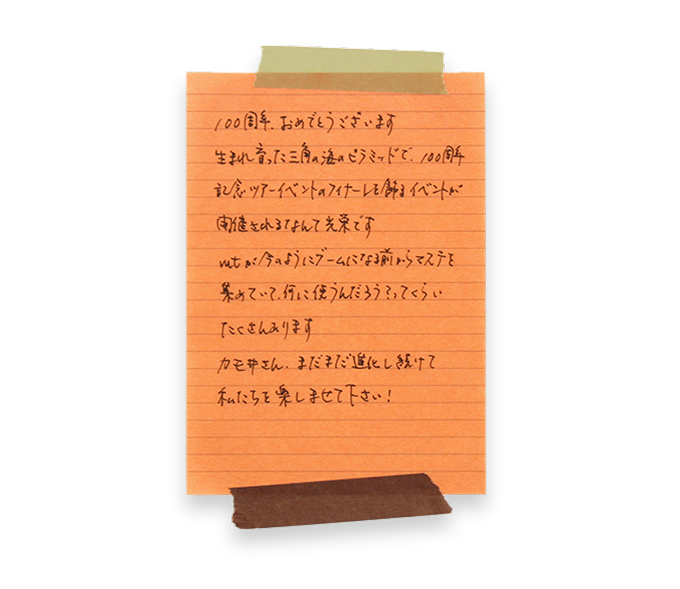 100周年、おめでとうございます
生まれ育った三角の海のピラミッドで、100周年
記念ツアーイベントのフィナーレを飾るイベントが
開催されるなんて光栄です
mtが今のようにブームになる前からマステを
集めていて、何に使うんだろう？ってくらい
たくさんあります
カモ井さん、まだまだ進化し続けて
私たちを楽しませて下さい！